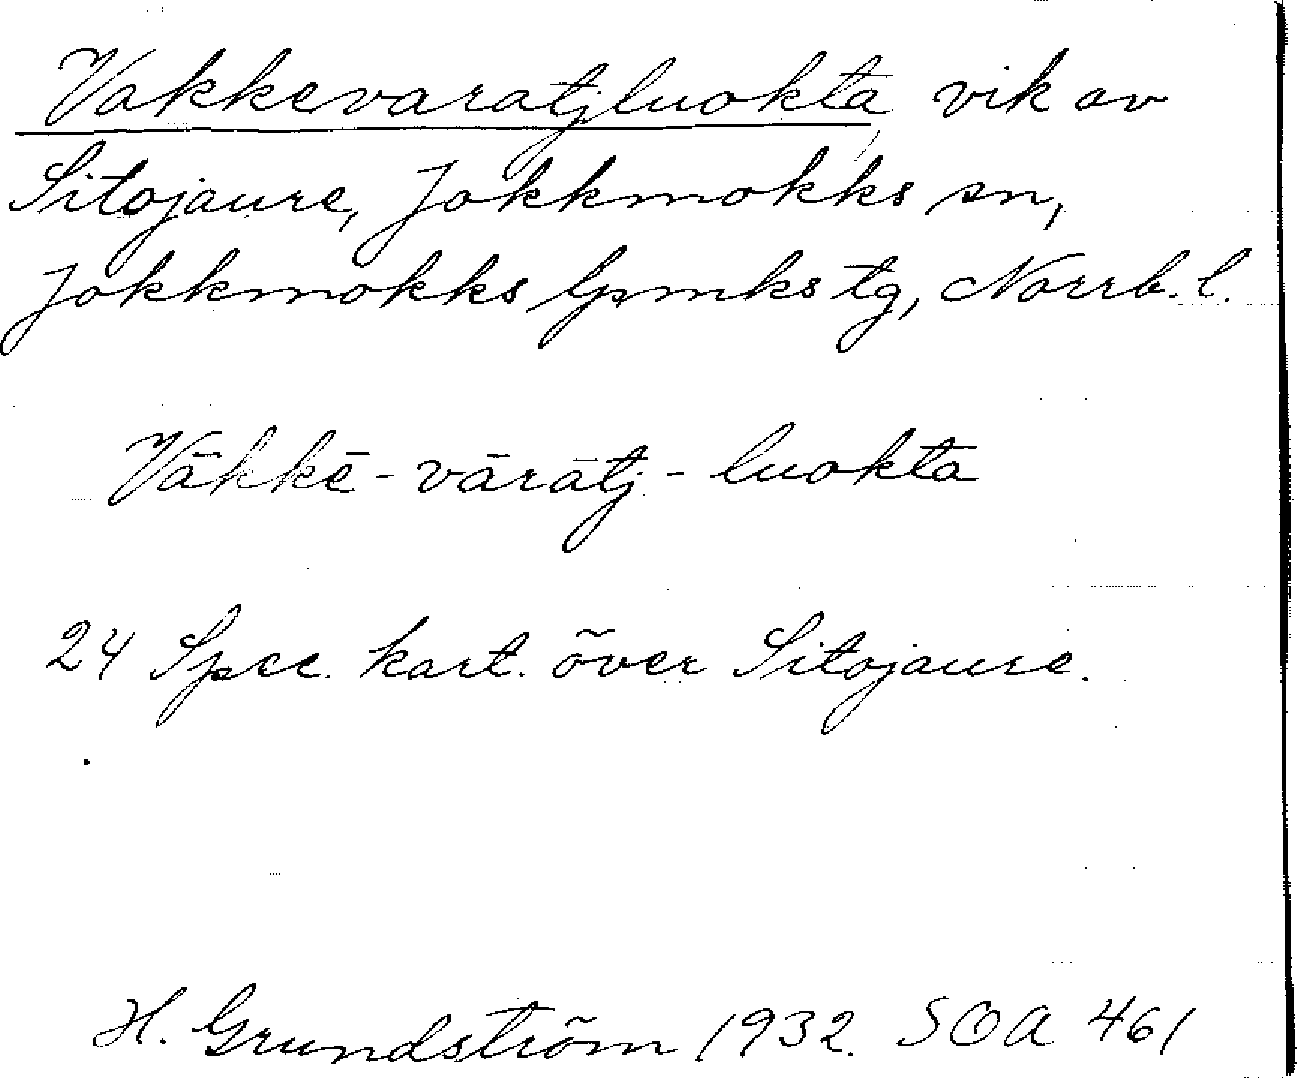 Vakkevaratjluokta, vik av
Sitojaure, Jokkmokks sn,
Jokkmokks lpmks tg, Norrb. l.
Vākkē-vārātj-luokta
24 Spec. kart. över Sitojaure.
H. Grundström 1932. SOA 461